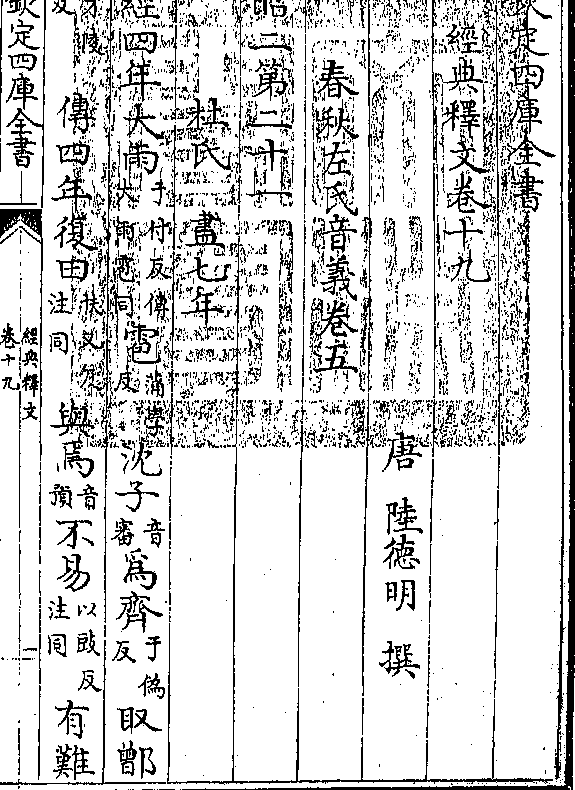 欽定四庫全書
經典釋文卷十九
唐 陸德明 撰
春秋左氏音義卷五
昭二第二十一
杜氏 盡七年
經四年大雨于付反傳大雨雹同雹蒲學反沈子音審爲齊于僞反取鄫
才陵反傳四年復田扶又反注同與焉音預不易以豉反注同有難
欽定四庫全書
經典釋文
卷十九
一